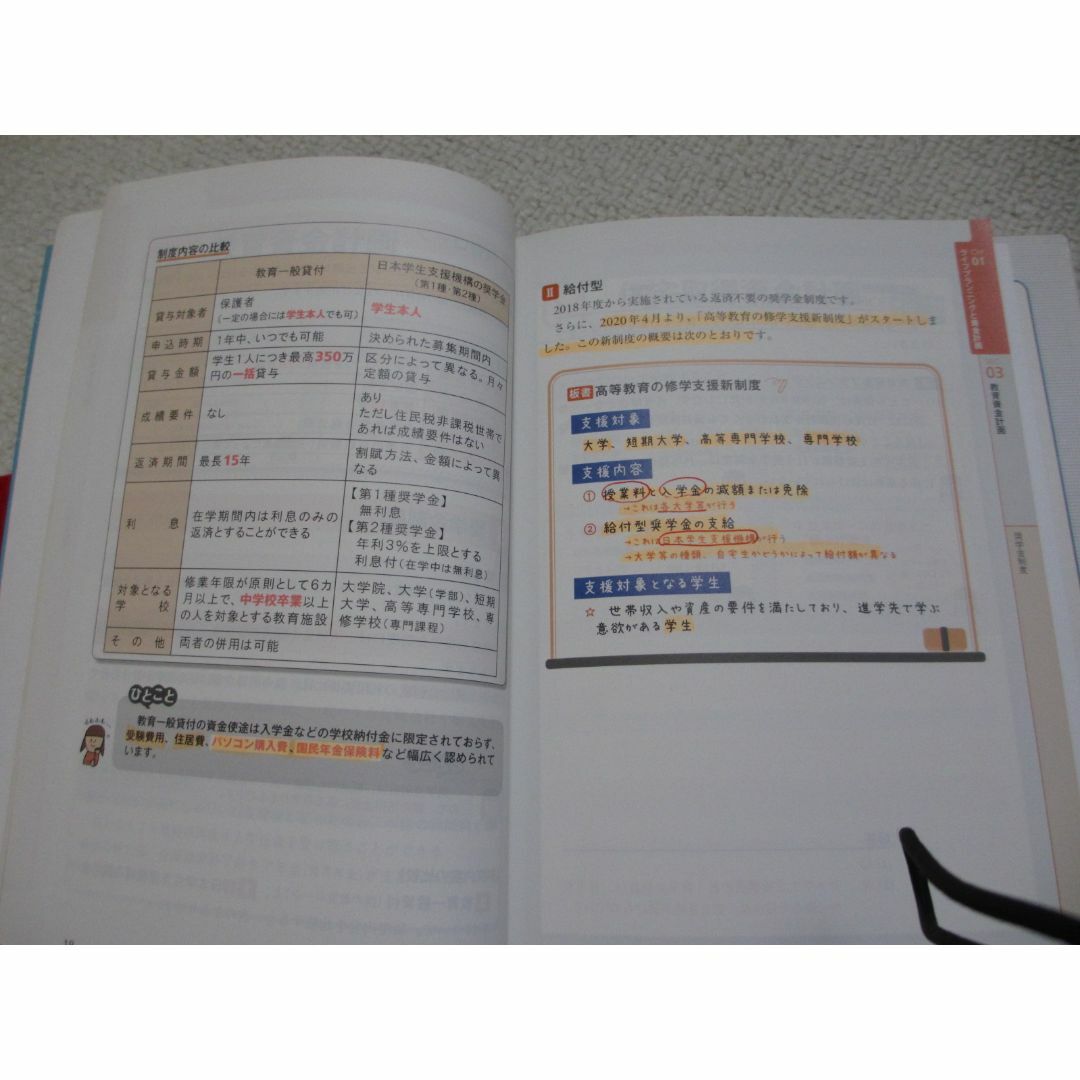 制度内容の比較
教育一般貸付
日本学生支援機構の奨学金
(第1種・第2種)
貸与対象者
保護者
(一定の場合には学生本人でも可)
学生本人
申込時期
1年中、いつでも可能
決められた募集期間内
貸与金額
学生1人につき最高350万
円の一括貸与
区分によって異なる。月々
定額の貸与
成績要件
なし
あり
ただし住民税非課税世帯で
あれば成績要件はない
返済期間
最長15年
割賦方法、金額によって異
なる
利息
在学期間内は利息のみの
返済とすることができる
【第1種奨学金】
無利息
【第2種奨学金】
年利3%を上限とする
利息付(在学中は無利息)
対象となる
学校
修業年限が原則として6カ
月以上で、中学校卒業以上
の人を対象とする教育施設
大学院、大学(学部)、短期
大学、高等専門学校、専
修学校(専門課程)
その他
両者の併用は可能
ひとこと
教育一般貸付の資金使途は入学金などの学校納付金に限定されておらず、
受験費用、住居費、パソコン購入費、国民年金保険料など幅広く認められて
います。
Ⅱ 給付型
2018年度から実施されている返済不要の奨学金制度です。
さらに、2020年4月より、「高等教育の修学支援新制度」がスタートしま
した。この新制度の概要は次のとおりです。
板書 高等教育の修学支援新制度
支援対象
大学、短期大学、高等専門学校、専門学校
支援内容
① 授業料と入学金の減額または免除
→これは各大学等が行う
② 給付型奨学金の支給
→これは日本学生支援機構が行う
→大学等の種類、自宅生かどうかによって給付額が異なる
支援対象となる学生
☆ 世帯収入や資産の要件を満たしており、進学先で学ぶ
意欲がある学生
CH 01
ライフプランニングと資金計画
03
教育資金計画
奨学金制度